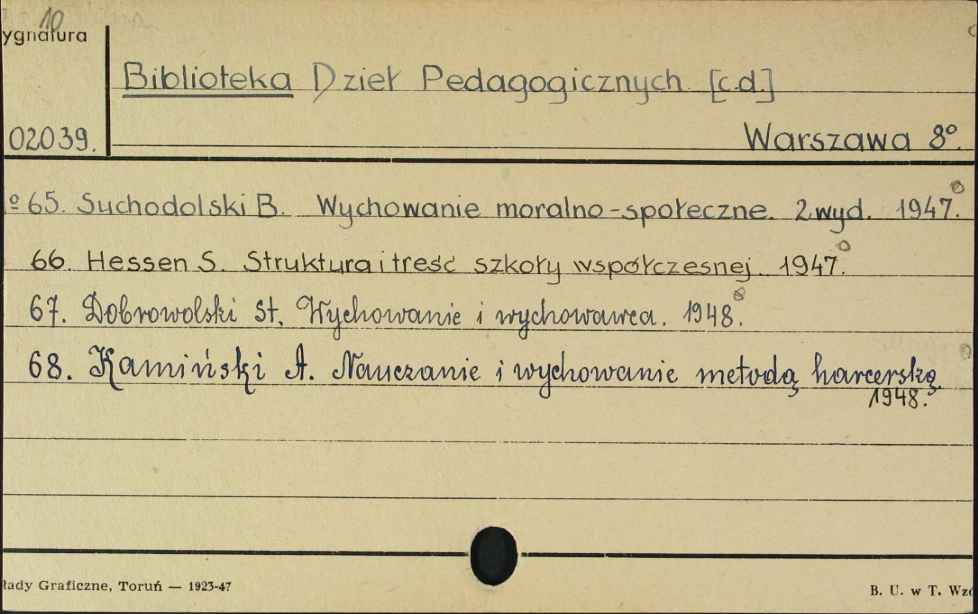 10
ygnatura
Biblioteka Dzieł Pedagogicznych [c.d.]
02039. Warszawa 8º.
º 65. Suchodolski B. Wychowanie moralno-społeczne. 2 wyd. 1947.
66. Hessen S. Struktura i treść szkoły współczesnej. 1947.
67. Dobrowolski St. Wychowanie i wychowawca. 1948.
68. Kamiński A. Nauczanie i wychowanie metodą harcerską.
1948.
łady Graficzne, Toruń — 1923-47
B. U. w T. Wzó